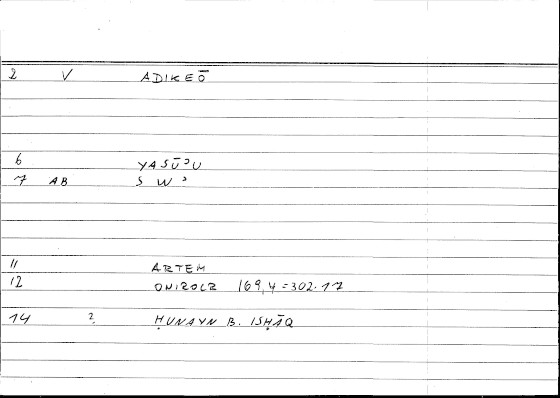 2 V ADIKEŌ
6 YASŪʾU
7 AB S W ʾ
11 ARTEM
12 ONIROCR 169,4=302.17
14 ? ḤUNAYN B. ISḤĀQ